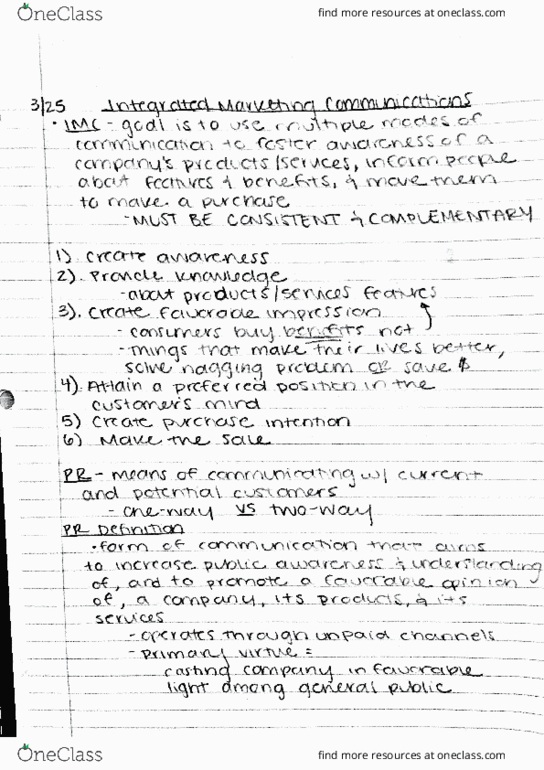 OneClass find more resources at oneclass.com
3/25 Integrated Marketing Communications
• IMC - goal is to use multiple modes of
communication to foster awareness of a
company's products/services, inform people
about features & benefits, & move them
to make a purchase
- MUST BE CONSISTENT & COMPLEMENTARY
1) Create awareness
2). Provide knowledge
- about products/services features
3). Create favorable impression
- consumers buy benefits not
- things that make their lives better,
solve nagging problem OR save $
4) Attain a preferred position in the
customer's mind
5) Create purchase intention
6) Make the sale
PR - means of communicating w/ current
and potential customers
- one-way VS two-way
PR Definition
• form of communication that aims
to increase public awareness & understanding
of, and to promote a favorable opinion
of, a company, its products, & its
services
- operates through unpaid channels
- primary virtue =
casting company in favorable
light among general public
OneClass find more resources at oneclass.com